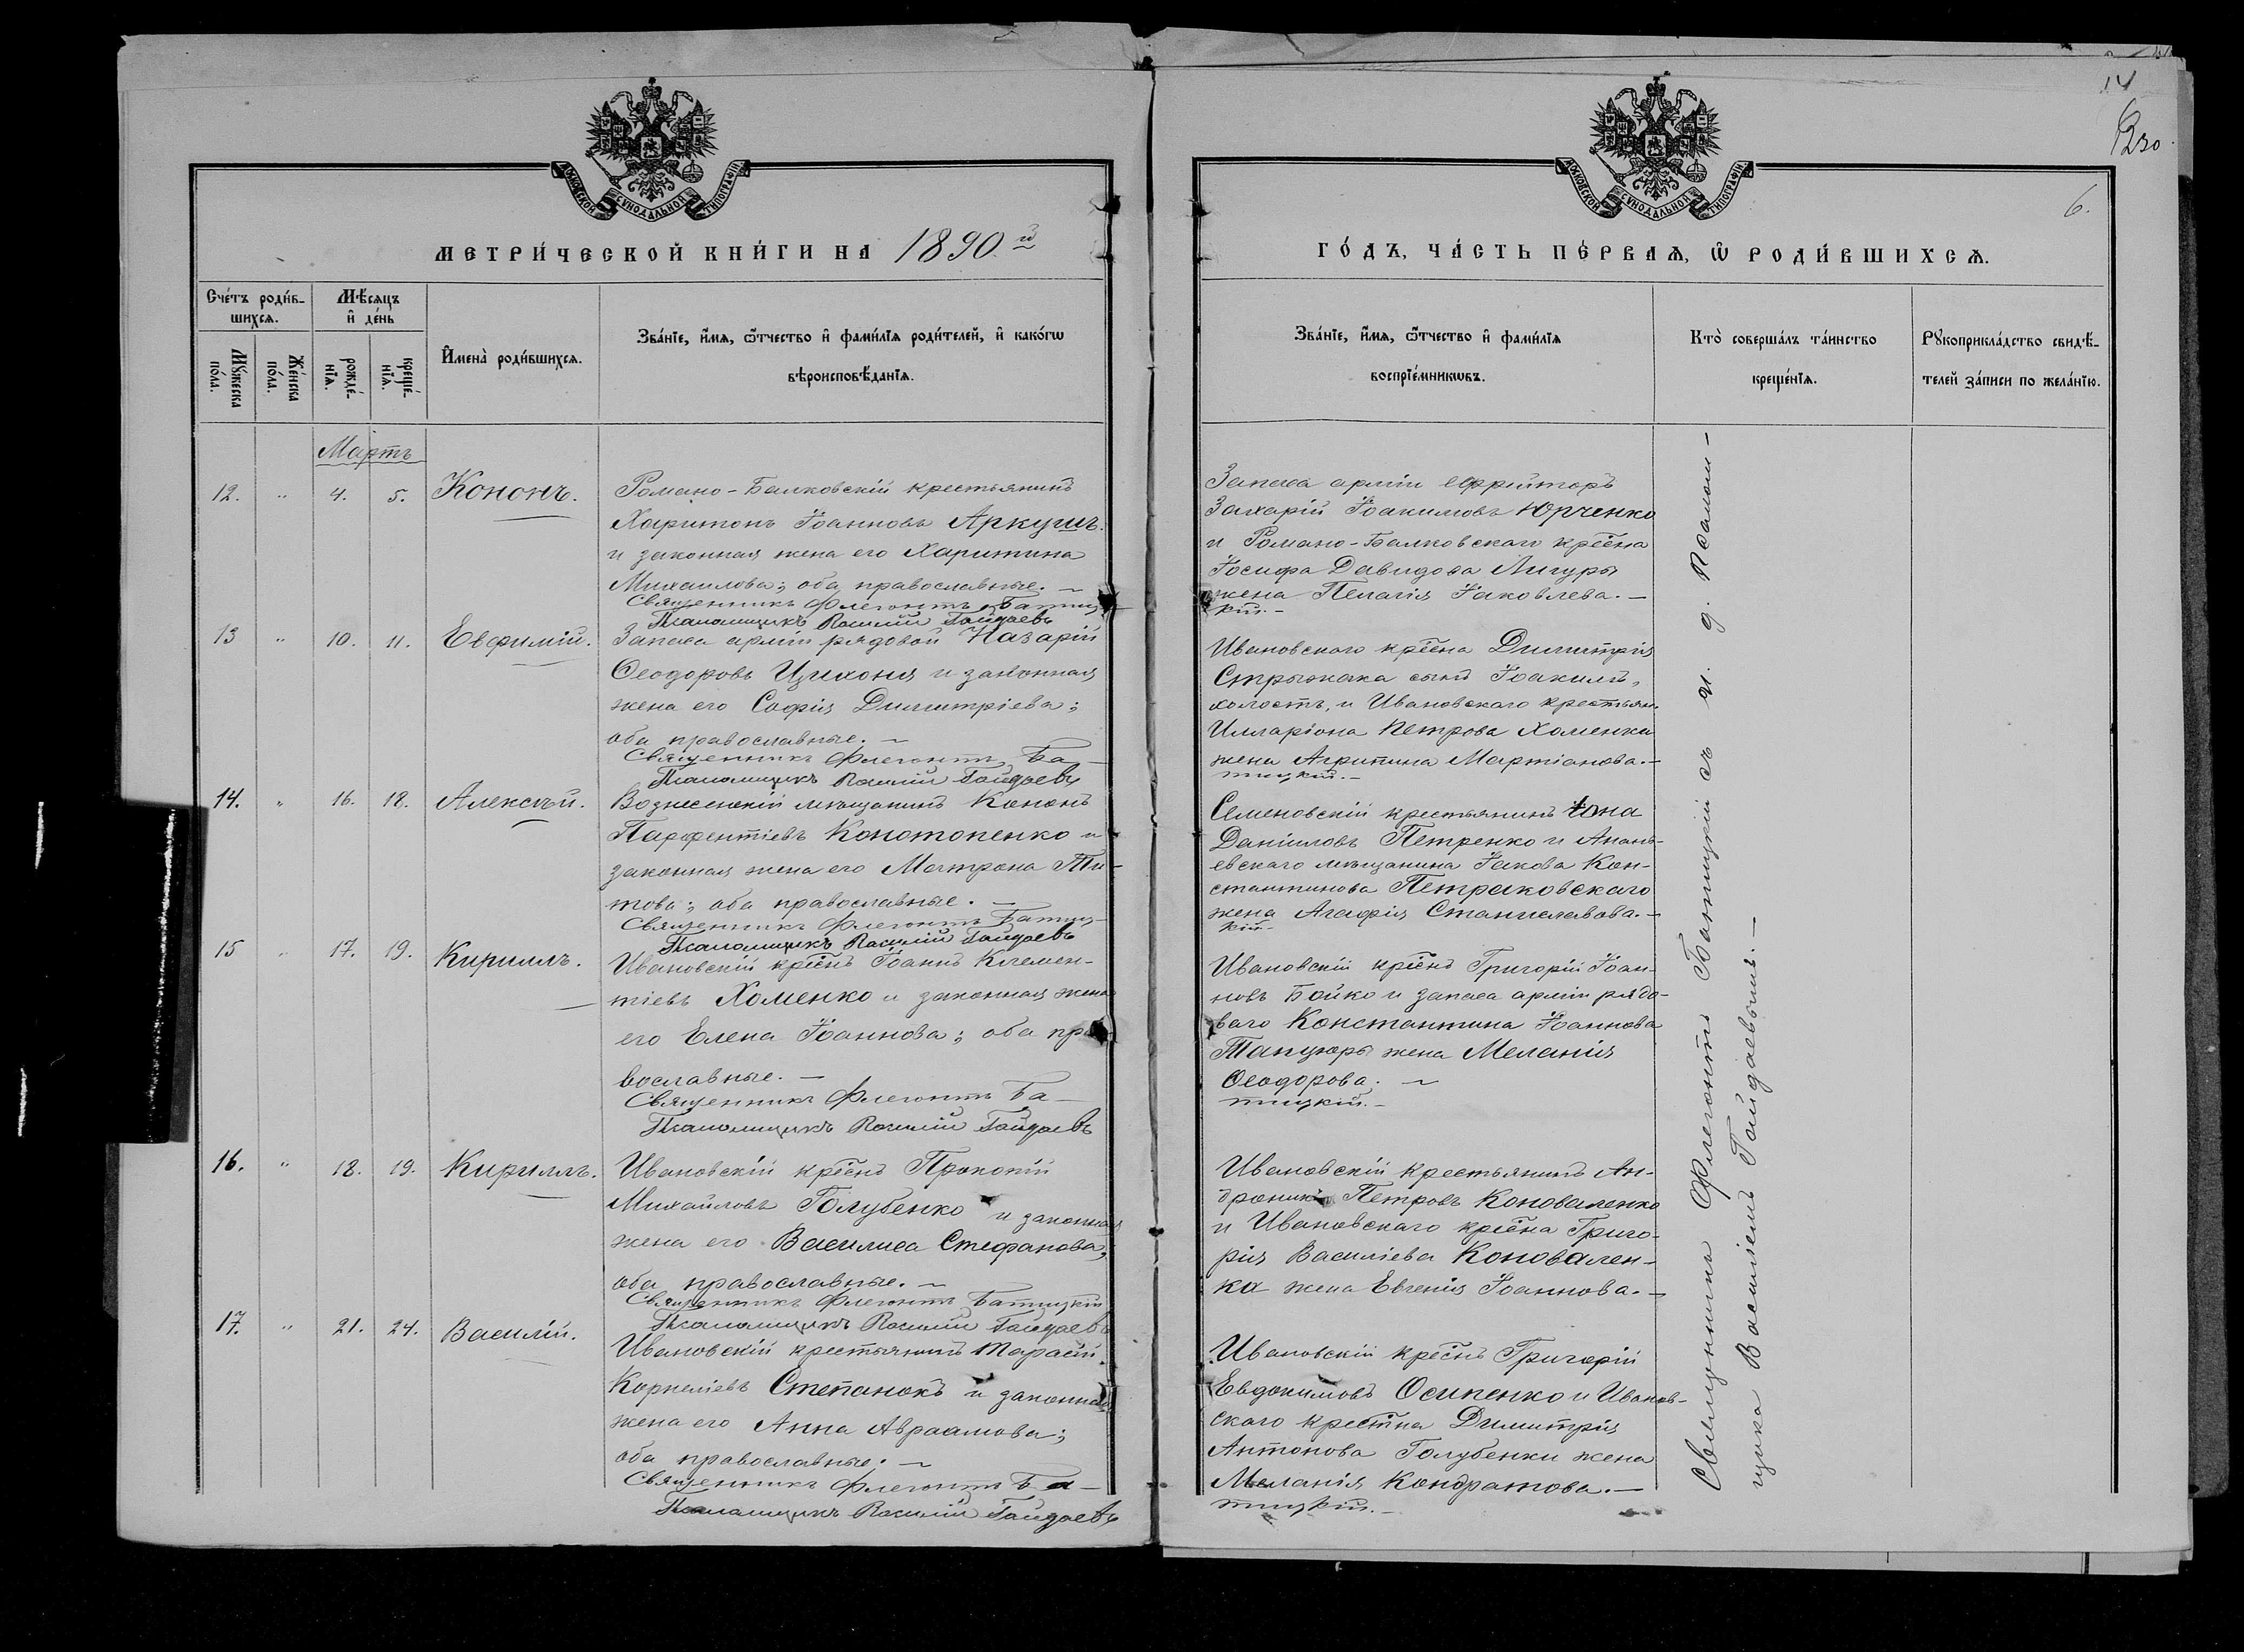 14
230.
6.
МОСКОВСКОЙ СѴНОДАЛЬНОЙ ТИПОГРАФІИ
МОСКОВСКОЙ СѴНОДАЛЬНОЙ ТИПОГРАФІИ
МЕТРИ́ЧЕСКОЙ КНИ́ГИ НА 1890.й
ГО́ДЪ, ЧА́СТЬ ПЕ́РВАѦ, Ѿ РОДИ́ВШИХСѦ.
Сче́тъ роди́в-
шихсѧ.
Мѣ́сѧцъ
и҆ де́нь
Мꙋ́жеска
по́ла.
Же́нска
по́ла.
рожде́-
нїѧ.
креще́-
нїѧ.
И҆мена̀ роди́вшихсѧ.
Зва́нїе, и҆́мѧ, ѻ҆́тчество и҆ фами́лїѧ роди́телей, и҆ како́гѡ
вѣроисповѣ́данїѧ.
Зва́нїе, и҆́мѧ, ѻ҆́тчество и҆ фами́лїѧ
воспрїе́мникѡвъ.
Кто̀ соверша́лъ та́инство
креще́нїѧ.
Рꙋкоприкла́дство свидѣ́-
телей за́писи по жела́нїю.
Мартъ
12. " 4. 5. Кононъ.
Романо-Балковскій крестьянинъ
Харитонъ Іоанновъ Аркушъ.
и законная жена его Харитина
Михаилова; оба православные. —
Священникъ Флегонтъ Батиц-
Псаломщикъ Василій Гайдаевъ
Запаса арміи ефрейторъ
Захарій Іоакимовъ Юрченко
и Романо-Балковскаго кресна
Іосифа Давидова Лигуры
жена Пелагія Іаковлева. —
кій. —
13 " 10. 11. Евфимій.
Запаса арміи рядовой Назарій
Ѳеодоровъ Цихоня и законная
жена его Софія Димитріева;
оба православные. —
Священникъ Флегонтъ Ба-
Псаломщикъ Василій Гайдаевъ
Ивановскаго кресна Димитрія
Стрыжака сынъ Іоакимъ,
холостъ, и Ивановскаго крестьян.
Илларіона Петрова Хоменка
жена Агрипина Мартіанова. —
тицкій. —
14. " 16. 18. Алексѣй.
Вознесенскій мѣщанинъ Кононъ
Парфентіевъ Конотопенко и
законная жена его Матрона Ти-
това; оба православные. —
Священникъ Флегонтъ Батиц-
Псаломщикъ Василій Гайдаевъ
Семеновскій крестьянинъ Іона
Даніиловъ Петренко и Анань-
евскаго мѣщанина Іакова Кон-
стантинова Петраковскаго
жена Агафія Станиславова. —
кій —
15 " 17. 19. Кириллъ.
Ивановскій кресн Іоаннъ Клемен-
тіевъ Хоменко и законная жена
его Елена Іоаннова; оба пра
вославные. —
Священникъ Флегонтъ Ба-
Псаломщикъ Василій Гайдаевъ
Ивановскій креснъ Григорій Іоан-
новъ Бойко и запаса арміи рядо-
ваго Константина Іоаннова
жена Меланія
Ѳеодорова. —
тицкій. —
16. " 18. 19. Кириллъ.
Ивановскій креснъ Прокопій
Михайловъ Голубенко и законная
жена его Василиса Стефанова;
оба православные. —
Священникъ Флегонтъ Батицкій
Псаломщикъ Василій Гайдаевъ
Ивановскій крестьянинъ Ан-
дроникъ Петровъ Коноваленко
и Ивановскаго кресна Григо-
рія Василіева Коновален-
ка жена Евгенія Іоаннова. —
17. " 21. 24. Василій.
Ивановскій крестьянинъ Тарасій
Корнеліевъ Степанокъ и законная
жена его Анна Авраамова;
оба православные. —
Священникъ Флегонтъ Ба-
Псаломщикъ Василій Гайдаевъ
Ивановскій креснъ Григорій
Евдокимовъ Осипенко и Иванов-
скаго крестна Димитрія
Антонова Голубенки жена
Меланія Кондратова. —
тицкій. —
Священникъ Флегонтъ Батицкій съ и. д. псалом-
щика Василіемъ Гайдаевымъ. —